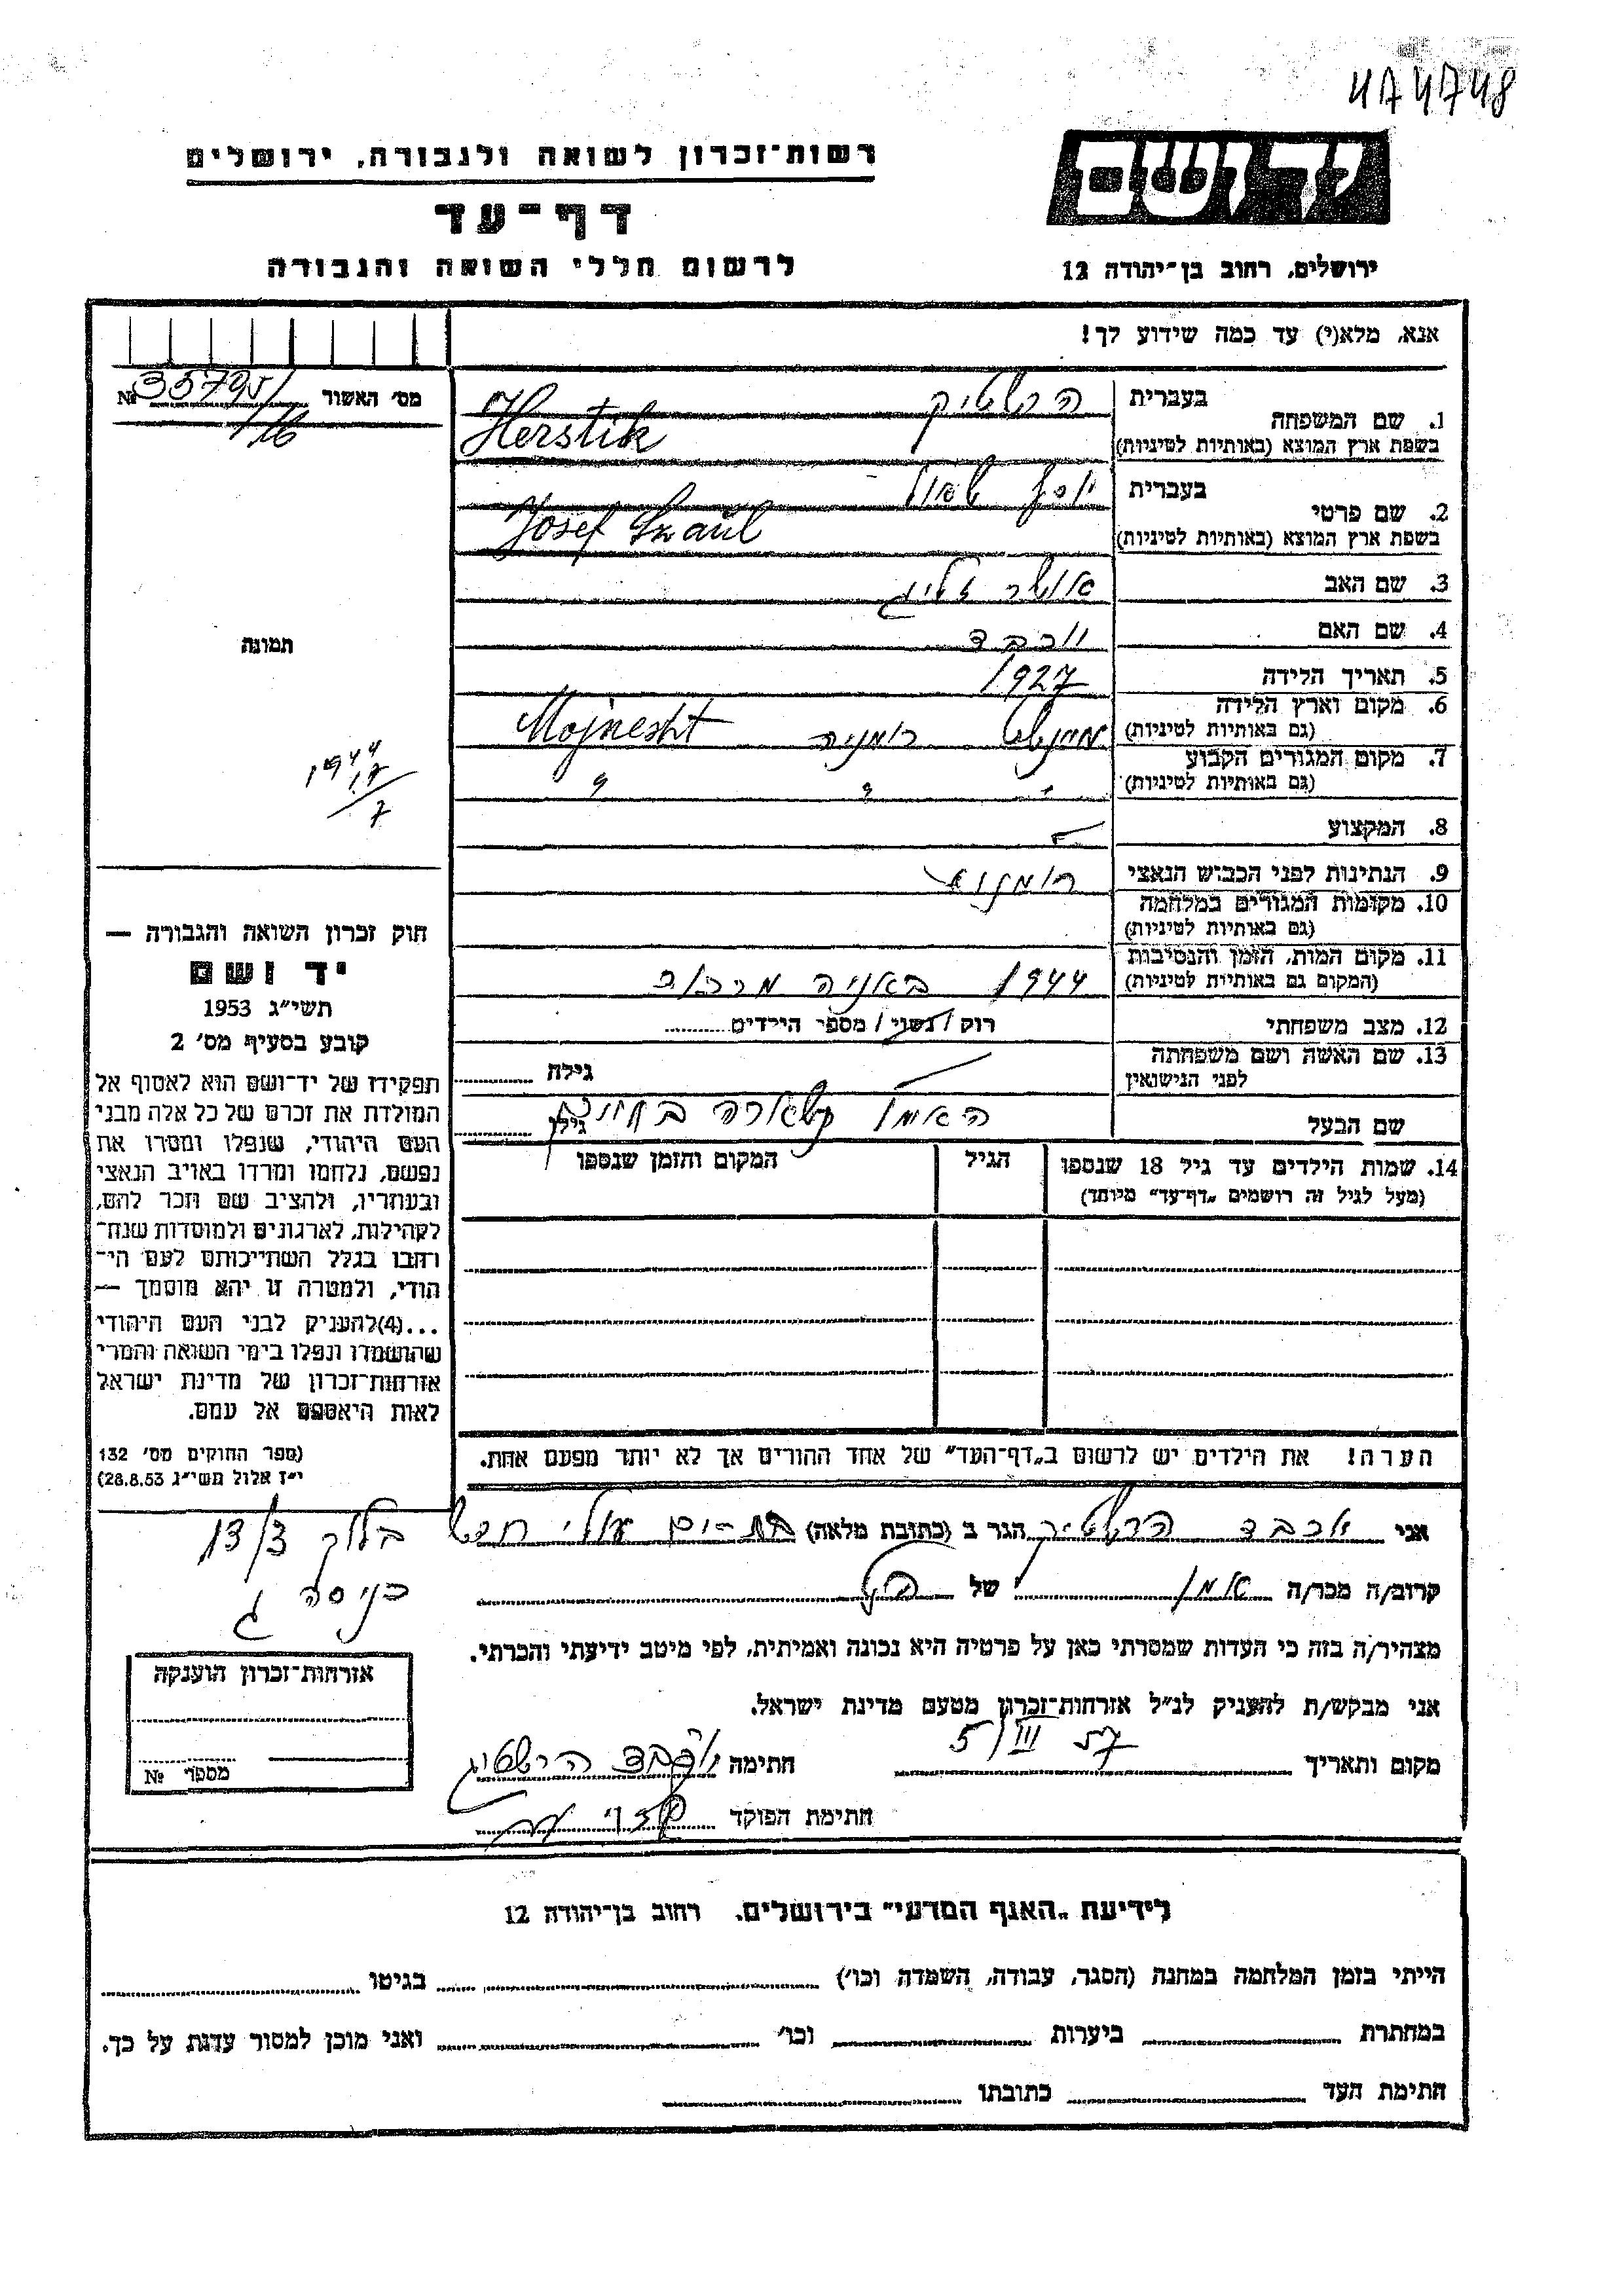 474748
רשות־זכרון לשואה ולגבורה, ירושלים
יד ושם
דף־עד
לרשום חללי השואה והגבורה
ירושלים, רחוב בן־יהודה 12
אנא, מלא(י) עד כמה שידוע לך!
מס׳ האשור 35795/16 №
1. שם המשפחה
בעברית הרשטיק
בשפת ארץ המוצא (באותיות לטיניות) Herstik
2. שם פרטי
בעברית יוסף שאול
בשפת ארץ המוצא (באותיות לטיניות) Josef Szaul
3. שם האב אושר זליג
4. שם האם יוכבד
5. תאריך הלידה 1927
6. מקום וארץ הלידה
(גם באותיות לטיניות) מוינשט רומניה Mojnesht
7. מקום המגורים הקבוע
(גם באותיות לטיניות) " " "
8. המקצוע —
9. הנתינות לפני הכבוש הנאצי
10. מקומות המגורים במלחמה
(גם באותיות לטיניות)
11. מקום המות, הזמן והנסיבות
(המקום גם באותיות לטיניות) 1944 באניה
12. מצב משפחתי רווק / נשוי / מספר הילדים
13. שם האשה ושם משפחתה
לפני הנישואין גילה
שם הבעל האמא נשארה בחיים גילו
14. שמות הילדים עד גיל 18 שנספו
(מעל לגיל זה רושמים „דף־עד" מיוחד)
הגיל
המקום והזמן שנספו
הערה! את הילדים יש לרשום ב„דף־העד" של אחד ההורים אך לא יותר מפעם אחת.
תמונה
1944
17
7
חוק זכרון השואה והגבורה —
יד ושם
תשי״ג 1953
קובע בסעיף מס׳ 2
תפקידו של יד־ושם הוא לאסוף אל
המולדת את זכרם של כל אלה מבני
העם היהודי, שנפלו ומסרו את
נפשם, נלחמו ומרדו באויב הנאצי
ובעוזריו, ולהציב שם וזכר להם,
לקהילות, לארגונים ולמוסדות שנח־
רחבו בגלל השתייכותם לעם הי־
הודי, ולמטרה זו יהא מוסמך —
...(4)להעניק לבני העם היהודי
שהושמדו ונפלו בימי השואה והמרי
אזרחות־זכרון של מדינת ישראל
לאות היאספם אל עמם.
(ספר החוקים מס׳ 132
י״ז אלול תשי״ג 28.8.53)
אני יוכבד הרשטיק הגר ב (כתובת מלאה) בת-ים בלוק 13/3
כניסה ג
קרוב/ה מכר/ה אמו של הנ״ל
מצהיר/ה בזה כי העדות שמסרתי כאן על פרטיה היא נכונה ואמיתית, לפי מיטב ידיעתי והכרתי.
אני מבקש/ת להעניק לנ״ל אזרחות־זכרון מטעם מדינת ישראל.
מקום ותאריך 5/III 57 חתימה יוכבד הרשטיג
חתימת הפוקד
אזרחות־זכרון הוענקה
מספר №
לידיעת „האגף המדעי" בירושלים, רחוב בן־יהודה 12
הייתי בזמן המלחמה במחנה (הסגר, עבודה, השמדה וכו׳) בגיטו
במחתרת ביערות וכו׳ ואני מוכן למסור עדות על כך.
חתימת העד כתובתו